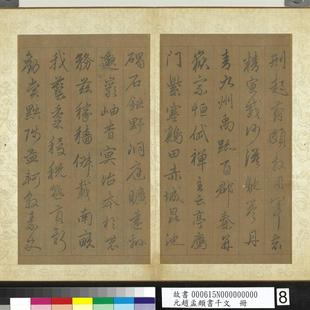 刑起翦頗牧用軍最
精宣威沙漠馳譽丹
青九州禹跡百郡秦并
嶽宗恒岱禪主云亭雁
門紫塞雞田赤城昆池
碣石鉅野洞庭曠遠緜
邈巖岫杳冥治本於農
務茲稼穡俶載南畝
我藝黍稷稅熟貢新
勸賞黜陟孟軻敦素史
故書 000615N000000000
元趙孟頫書千文 冊
8